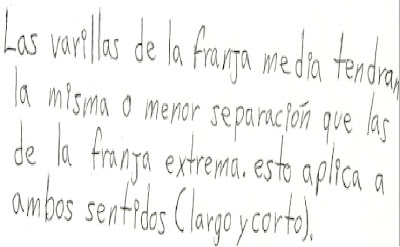 Las varillas de la franja media tendran
la misma o menor separación que las
de la franja extrema. esto aplica a
ambos sentidos (largo y corto).